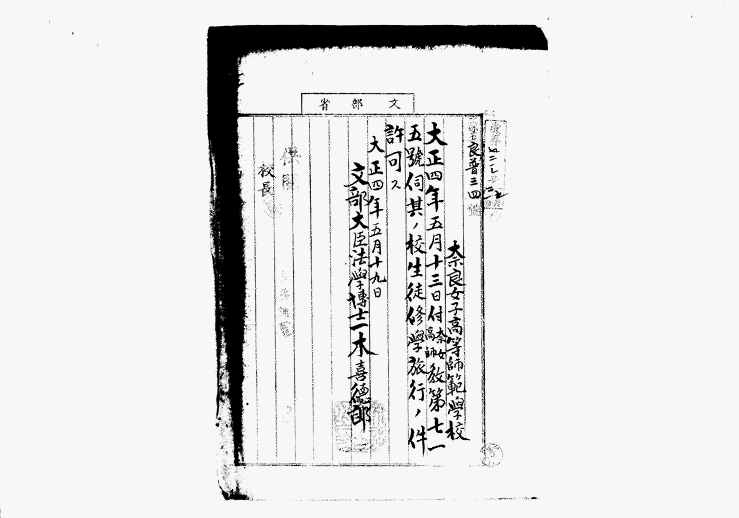 文部省
良普三四
奈良女子高等師範學校
大正四年五月十三日付奈女高師教第七一
五號伺其ノ校生徒修學旅行ノ件
許可ス
大正四年五月十九日
文部大臣法學博士一木喜德郎
校長